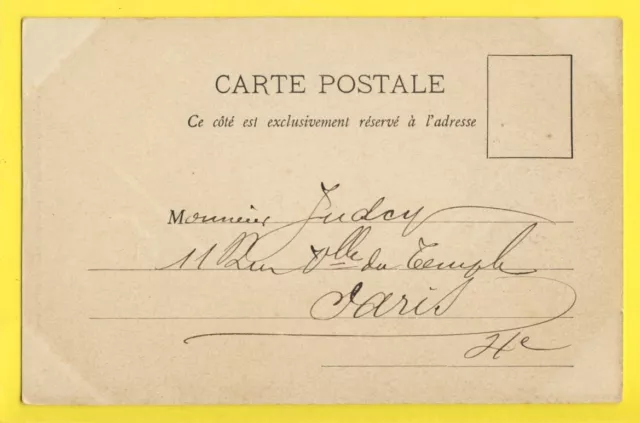 CARTE POSTALE
Ce côté est exclusivement réservé à l'adresse
Monsieur Judcy
11 Rue Vlle du Temple
Paris
4e